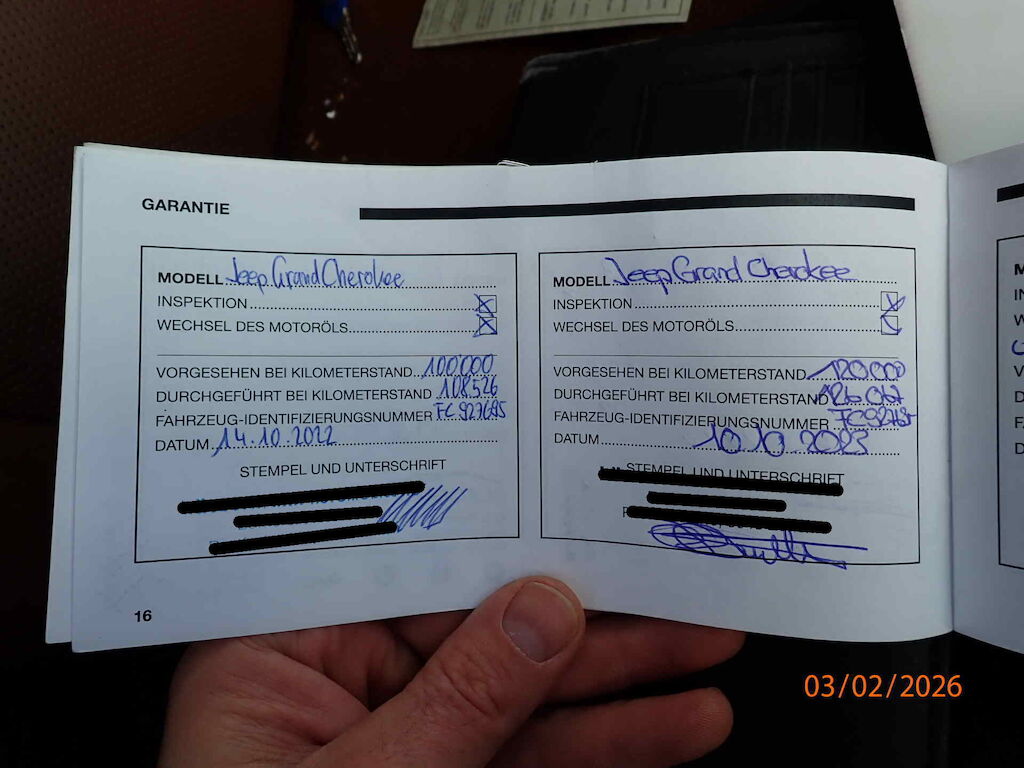 GARANTIE
MODELL Jeep Grand Cherokee
INSPEKTION
WECHSEL DES MOTORÖLS
VORGESEHEN BEI KILOMETERSTAND 100.000
DURCHGEFÜHRT BEI KILOMETERSTAND 108.526
FAHRZEUG-IDENTIFIZIERUNGSNUMMER FC927695
DATUM 14.10.2022
STEMPEL UND UNTERSCHRIFT
MODELL Jeep Grand Cherokee
INSPEKTION
WECHSEL DES MOTORÖLS
VORGESEHEN BEI KILOMETERSTAND 120.000
DURCHGEFÜHRT BEI KILOMETERSTAND
FAHRZEUG-IDENTIFIZIERUNGSNUMMER
DATUM 10.10.2023
STEMPEL UND UNTERSCHRIFT
16
03/02/2026